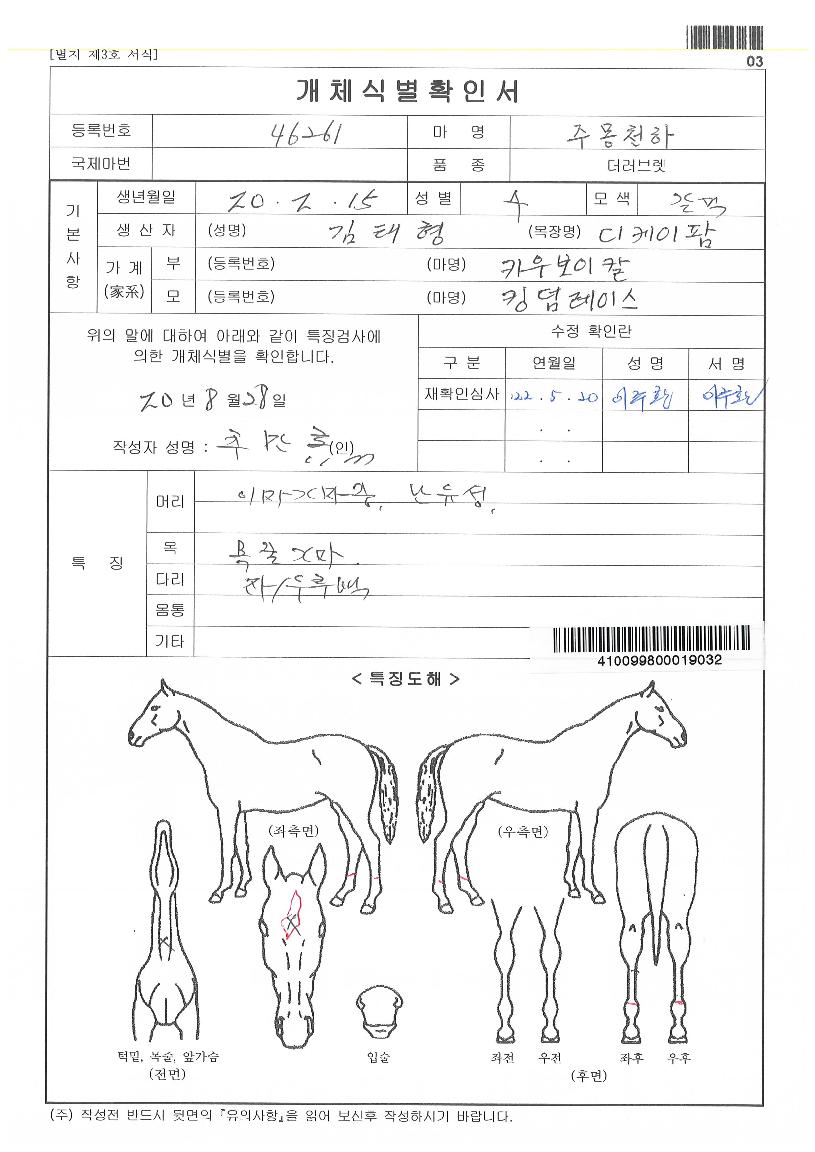 [별지 제3호 서식]
03
개체식별확인서
등록번호 46261 마 명 주몽천하
국제마번 품 종 더러브렛
기본사항
생년월일 20 . 2 . 15 성 별 수 모 색 갈색
생 산 자 (성명) 김태형 (목장명) 디케이팜
가 계 (家系) 부 (등록번호) (마명) 카우보이칼
모 (등록번호) (마명) 킹덤레이스
위의 말에 대하여 아래와 같이 특징검사에
의한 개체식별을 확인합니다.
20 년 8 월 28 일
작성자 성명 : (인)
수정 확인란
구 분 연월일 성 명 서 명
재확인심사 22 . 5 . 20
. .
. .
특 징
머리
목
다리
몸통
기타
410099800019032
< 특징도해 >
(좌측면) (우측면)
턱밑, 목줄, 앞가슴
(전면)
입술
좌전 우전 좌후 우후
(후면)
(주) 작성전 반드시 뒷면의 『유의사항』을 읽어 보신후 작성하시기 바랍니다.